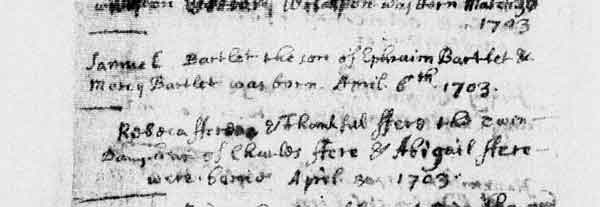 was born March
1703
Samuel Bartlet the son of Ephraim Bartlet &
Mercy Bartlet was born April 6th 1703.
Rebeca & Thankful ffere the twin
of Charles ffere & Abigail ffere
were April 1703.